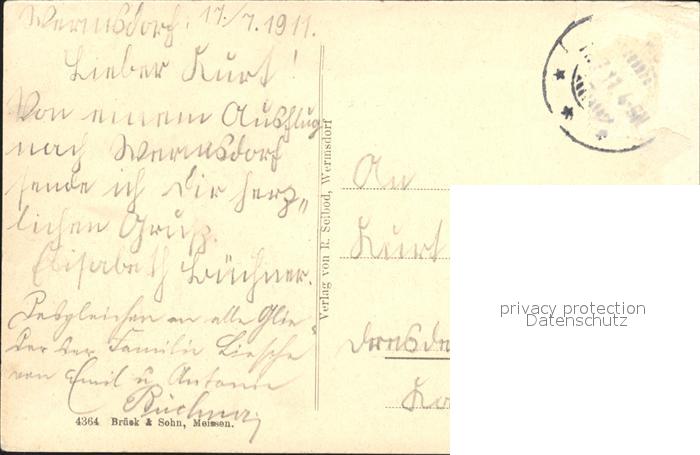 Wermsdorf: 17./7. 1911.
Lieber Kurt!
Von einem Ausflug
nach Wermsdorf
sende ich Dir herz„
lichen Gruß.
Elisabeth Büchner.
Desgleichen an alle Glie„
der der Familie Liesche
von Emil u. Antonie
Büchner
4364 Brück & Sohn, Meissen.
Verlag von R. Seibod, Wermsdorf
An
Kurt
Dresde
privacy protection
Datenschutz